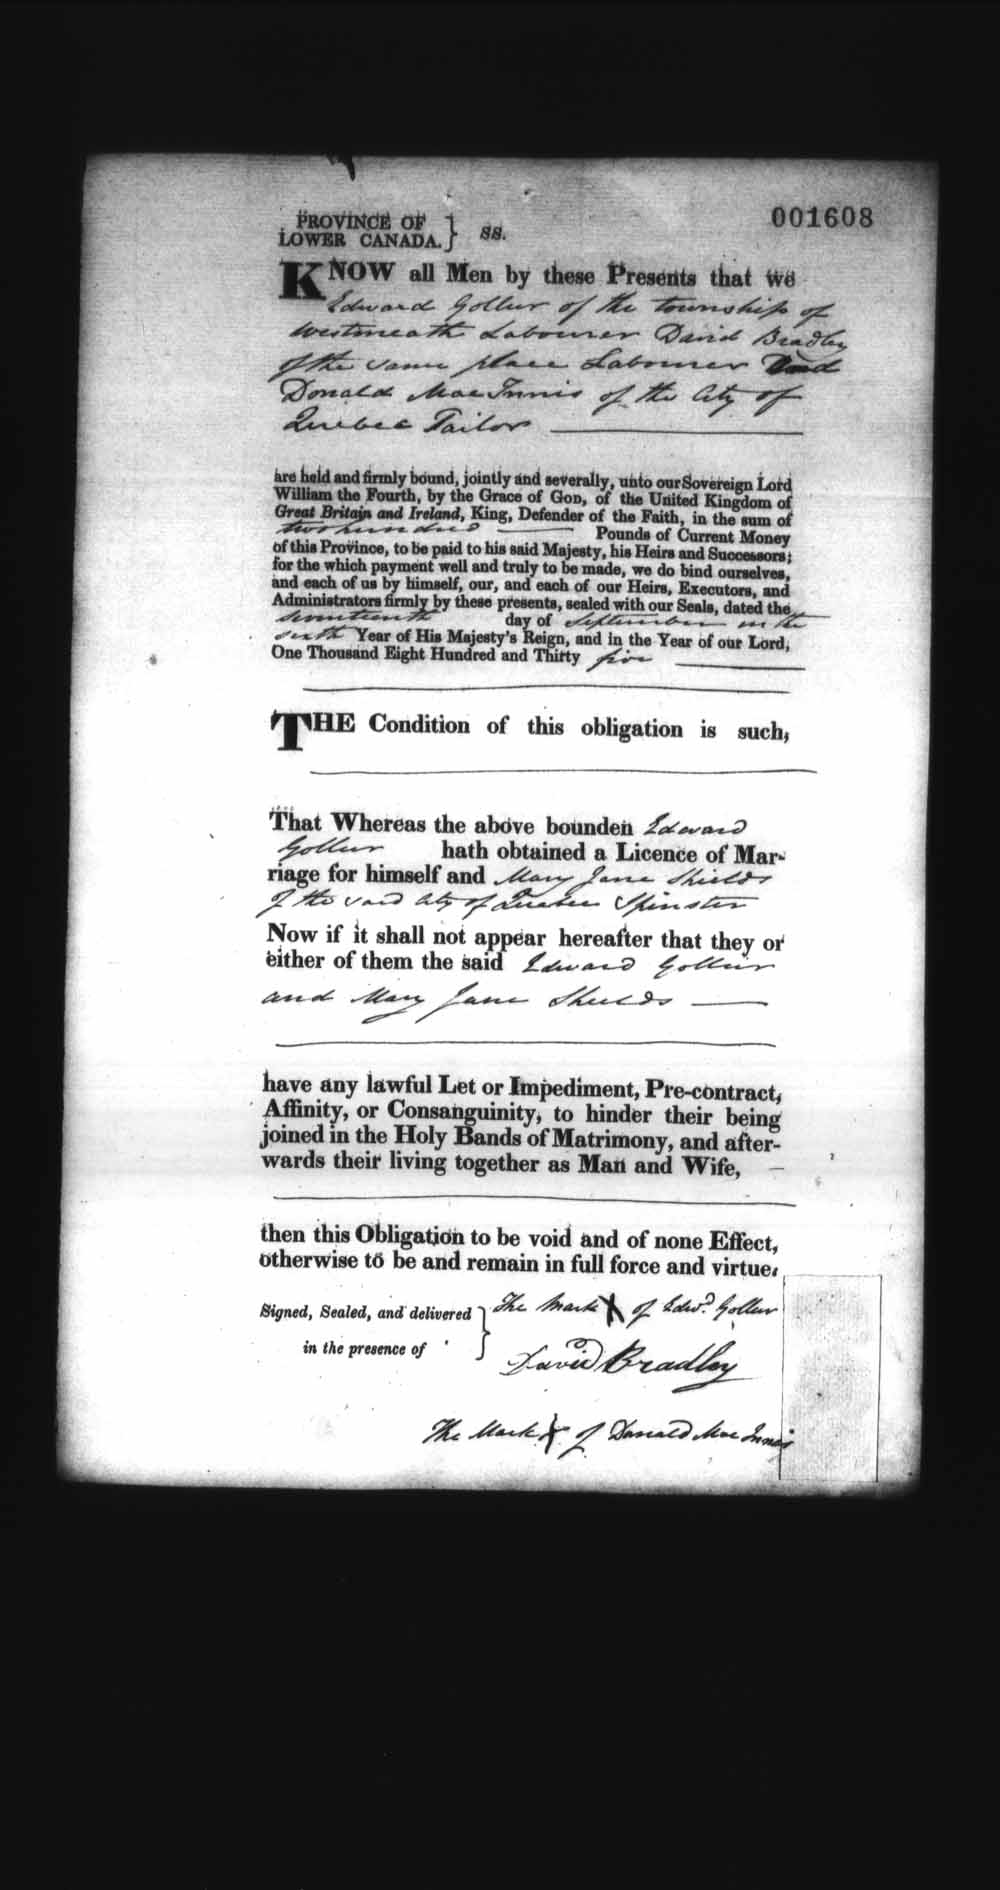 001608
PROVINCE OF
LOWER CANADA. } ss.
KNOW all Men by these Presents that we
Edward Gollur of the township of
Westmeath Labourer David Bradley
of the same place Labourer and
Donald MacInnis of the City of
Quebec Tailor
are held and firmly bound, jointly and severally, unto our Sovereign Lord
William the Fourth, by the Grace of GOD, of the United Kingdom of
Great Britain and Ireland, King, Defender of the Faith, in the sum of
two hundred Pounds of Current Money
of this Province, to be paid to his said Majesty, his Heirs and Successors;
for the which payment well and truly to be made, we do bind ourselves,
and each of us by himself, our, and each of our Heirs, Executors, and
Administrators firmly by these presents, sealed with our Seals, dated the
seventeenth day of September in the
sixth Year of His Majesty's Reign, and in the Year of our Lord,
One Thousand Eight Hundred and Thirty five
THE Condition of this obligation is such,
That Whereas the above bounden Edward
Gollur hath obtained a Licence of Mar-
riage for himself and Mary Jane Shields
of the said City of Quebec Spinster
Now if it shall not appear hereafter that they or
either of them the said Edward Gollur
and Mary Jane Shields
have any lawful Let or Impediment, Pre-contract,
Affinity, or Consanguinity, to hinder their being
joined in the Holy Bands of Matrimony, and after-
wards their living together as Man and Wife,
then this Obligation to be void and of none Effect,
otherwise to be and remain in full force and virtue.
Signed, Sealed, and delivered } The Mark X of Edwd. Gollur
in the presence of
David Bradley
The Mark X of Donald MacInnis